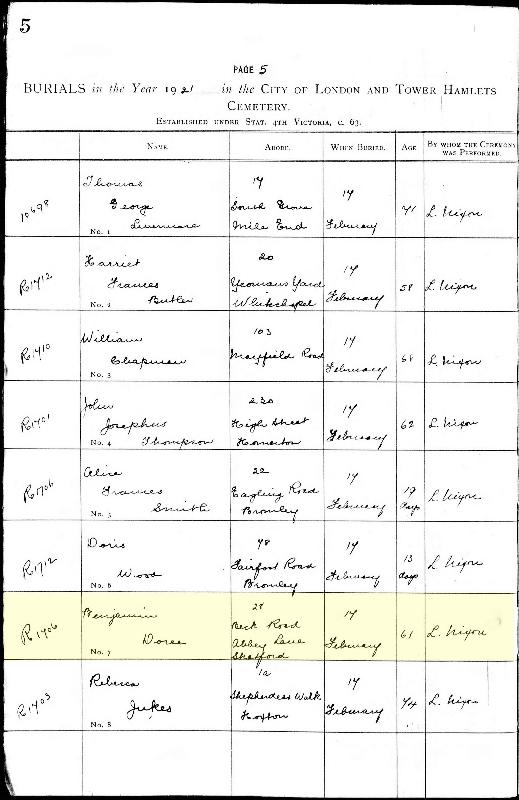 5
PAGE 5
BURIALS in the Year 1921 in the CITY OF LONDON AND TOWER HAMLETS
CEMETERY.
ESTABLISHED UNDER STAT. 4TH VICTORIA, C. 63.
NAME. ABODE. WHEN BURIED. AGE BY WHOM THE CEREMONY
WAS PERFORMED.
Thomas 14 14
10698 George South Grove 71 L. Nixon
No. 1 Mile End February
Harriet 20 14
R1712 Frances Yeomans Yard 58 L. Nixon
No. 2 Butler Whitechapel February
William 103 14
R1710 Chapman Mayfield Road 68 L. Nixon
No. 3 February
John 230 14
R1701 Josephus High Street 62 L. Nixon
No. 4 Thompson Homerton February
Alice 22 14
R1706 Frances Eagling Road 19 L. Nixon
No. 5 Smith Bromley February days
Doris 48 14
R1712 Wood Fairfoot Road 13 L. Nixon
No. 6 Bromley February days
Benjamin 14
R1706 Doree Road 61 L. Nixon
No. 7 Abbey Lane February
Stratford
Rebecca 1a 14
R1703 Jukes Shepherdess Walk 74 L. Nixon
No. 8 Hoxton February